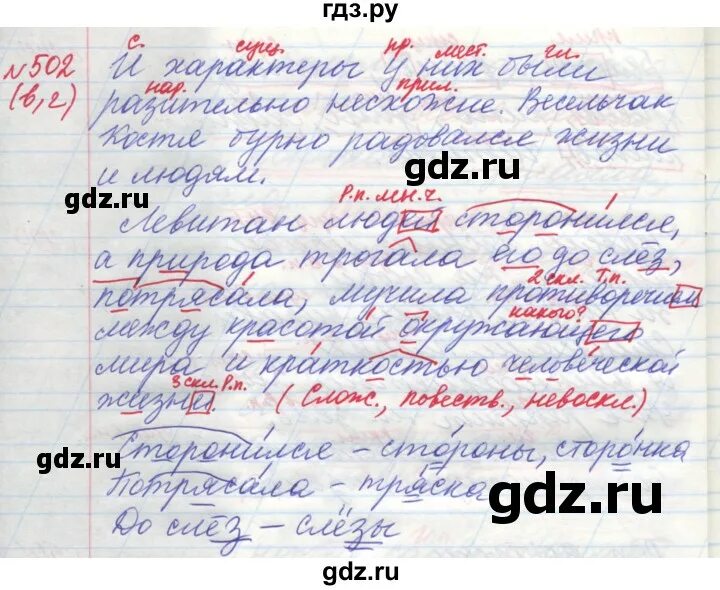 гдз.ру
с. сущ. пр. мест. гл.
№502 И характеры у них были
(в,г) нар. прил.
разительно несхожие. Весельчак
Костя бурно радовался жизни
и людям.
gdz.ru gdz.ru
Р.п. мн.ч.
Левитан людей сторонился,
а природа трогала его до слёз,
2 скл. Т.п.
потрясала, мучила противоречием
какого?
между красотой окружающего
мира и краткостью человеческой
3 скл. Р.п.
жизни. (Слож., повеств., невоскл.)
Сторонился – стороны, сторонка
gdz.ru
Потрясала – тряска
gdz.ru
До слёз – слёзы
gdz.ru
гдз.ру